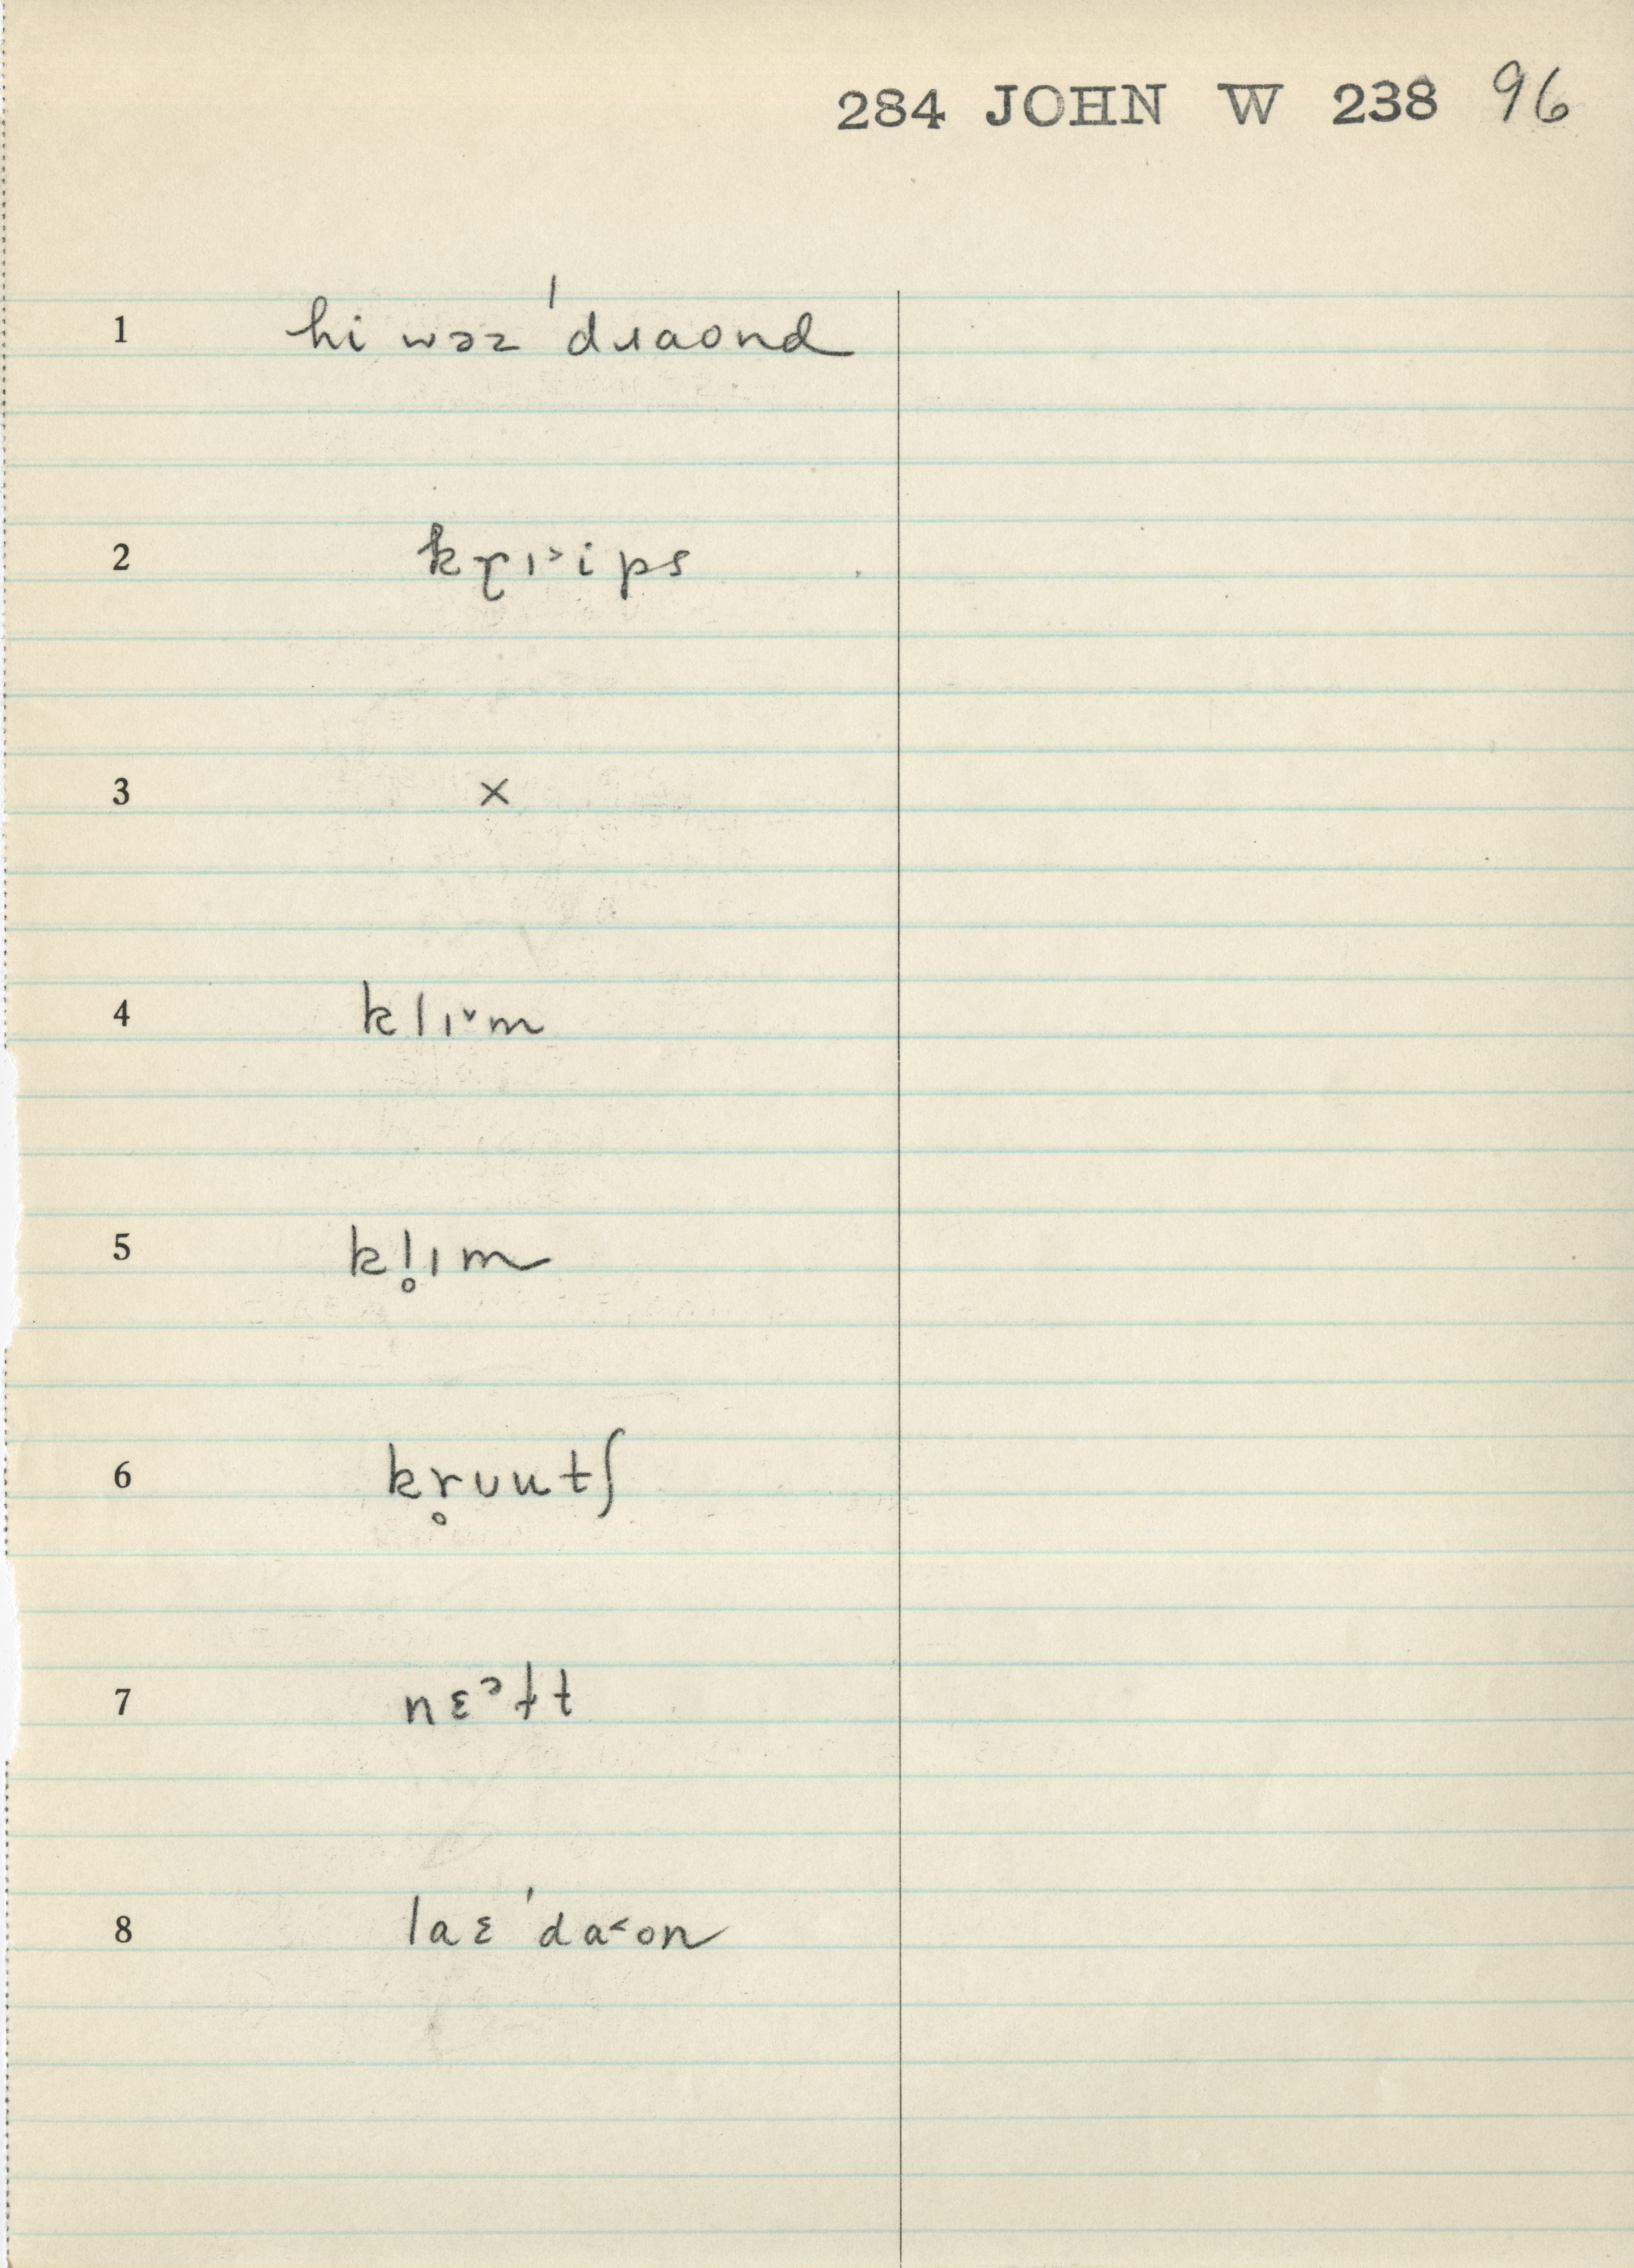 284 JOHN W 238 96
1 hi wəz ˈdɹaond
2 kɽɪ˃ips
3 ×
4 klɪ˅m
5 kl̥ɪm
6 kr̥ʊutʃ
7 nɛᵊɫt
8 laɛ ˈda˂on